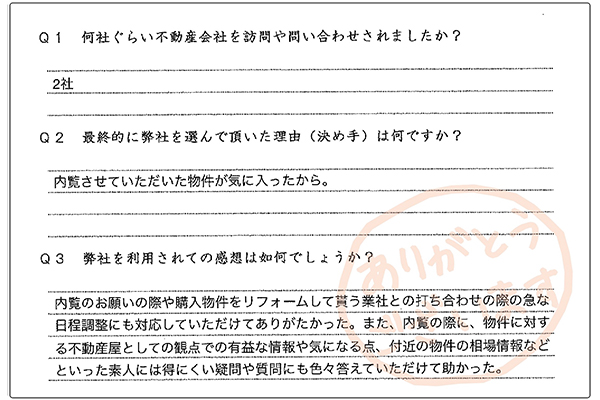 Q1 何社ぐらい不動産会社を訪問や問い合わせされましたか?
2社
Q2 最終的に弊社を選んで頂いた理由(決め手)は何ですか?
内覧させていただいた物件が気に入ったから。
Q3 弊社を利用されての感想は如何でしょうか?
内覧のお願いの際や購入物件をリフォームして貰う業社との打ち合わせの際の急な
日程調整にも対応していただけてありがたかった。また、内覧の際に、物件に対す
る不動産屋としての観点での有益な情報や気になる点、付近の物件の相場情報など
といった素人には得にくい疑問や質問にも色々答えていただけて助かった。
ありがとう